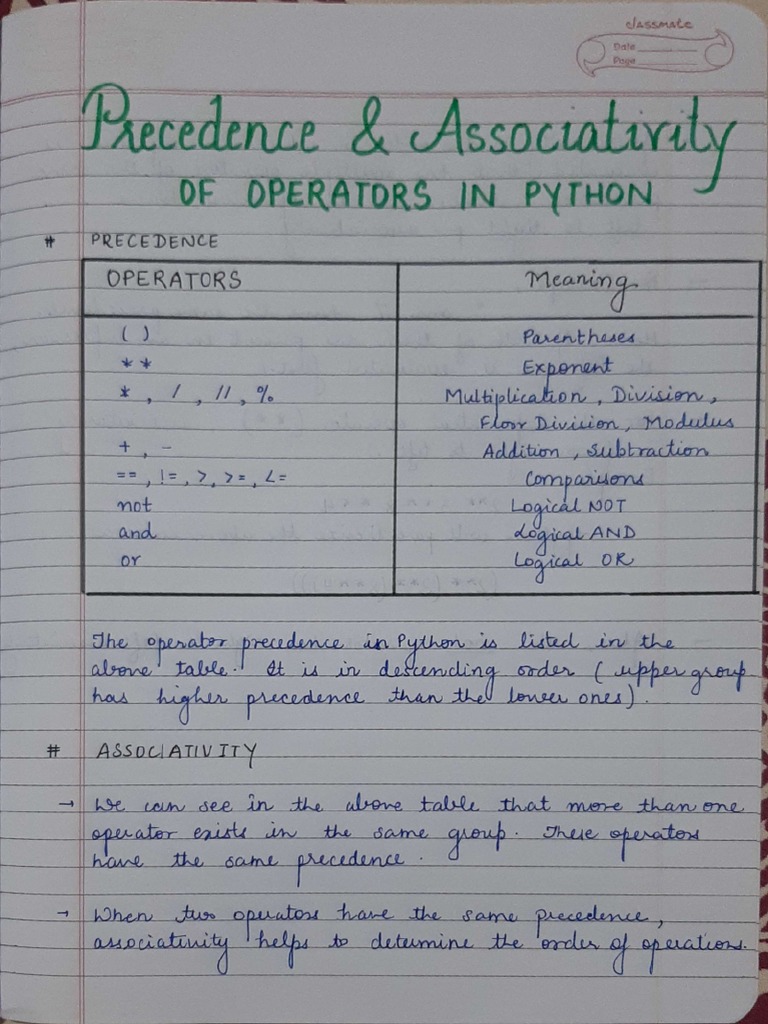 classmate
Date
Page
Precedence & Associativity
OF OPERATORS IN PYTHON
# PRECEDENCE
OPERATORS Meaning
( ) Parentheses
** Exponent
*, /, //, % Multiplication, Division,
Floor Division, Modulus
+, - Addition, Subtraction
==, !=, >, >=, <= Comparisons
not Logical NOT
and Logical AND
or Logical OR
The operator precedence in Python is listed in the
above table. It is in descending order (upper group
has higher precedence than the lower ones).
# ASSOCIATIVITY
→ We can see in the above table that more than one
operator exists in the same group. These operators
have the same precedence.
→ When two operators have the same precedence,
associativity helps to determine the order of operations.